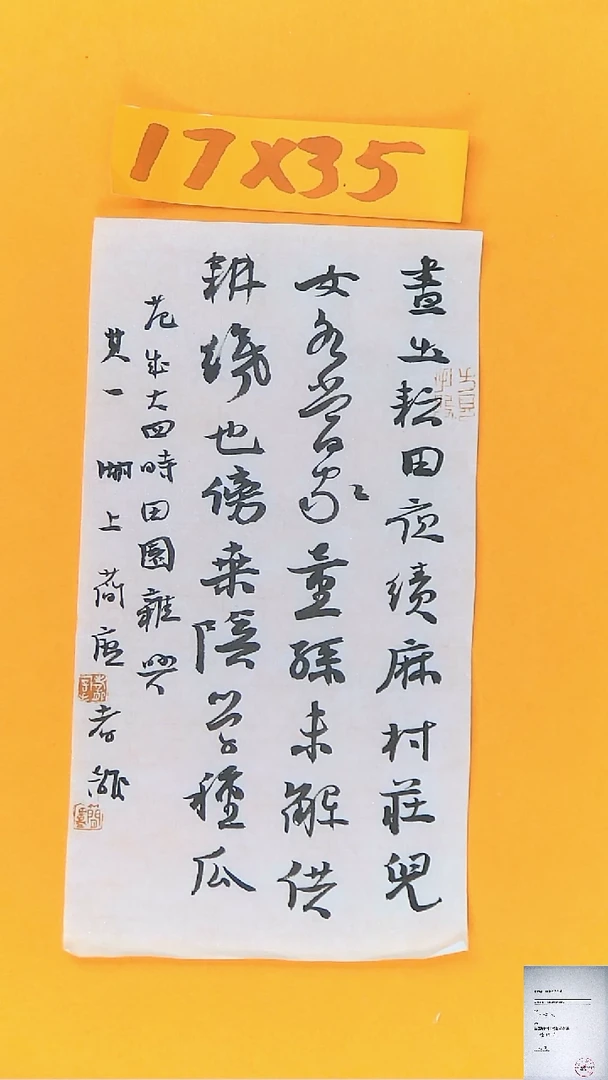 17X35
晝出耘田夜績麻村莊兒
女各當家童孫未解供
耕織也傍桑陰學種瓜
范成大四時田園雜興
其一 湖上